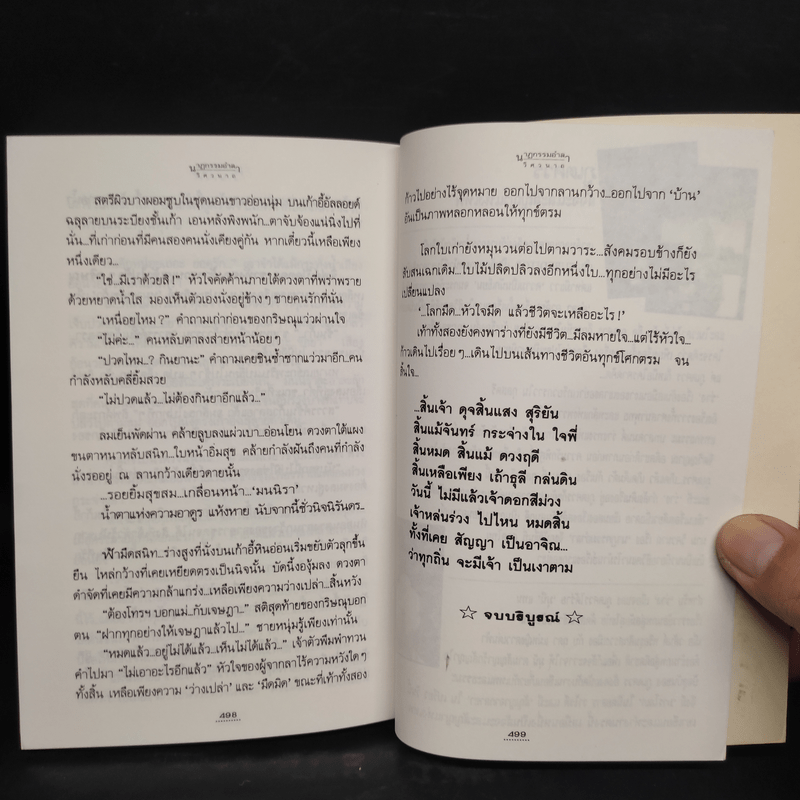 นาฏกรรมอำลา
วิศวนาถ
สตรีผิวบางผอมซูบในชุดนอนขาวอ่อนนุ่ม บนเก้าอี้อัลลอยด์
ฉลุลายบนระเบียงชั้นเก้า เอนหลังพิงพนัก...ตาจับจ้องแน่นิ่งไปที่
นั่น...ที่เก่าก่อนที่มีคนสองคนนั่งเคียงคู่กัน หากเดี๋ยวนี้เหลือเพียง
หนึ่งเดียว...
“ใช่...มีเราด้วยสิ!” หัวใจคัดค้านภายใต้ดวงตาที่พร่าพราย
ด้วยหยาดน้ำใส มองเห็นตัวเองนั่งอยู่ข้างๆ ชายคนรักที่นั่น
“เหนื่อยไหม?” คำถามเก่าก่อนของกริษณุแว่วผ่านใจ
“ไม่ค่ะ...” คนหลับตาลงส่ายหน้าน้อยๆ
“ปวดไหม...? กินยานะ” คำถามเคยชินซ้ำซากแว่วมาอีก...คน
กำลังหลับคลี่ยิ้มสวย
“ไม่ปวดแล้ว...ไม่ต้องกินยาอีกแล้ว...”
ลมเย็นพัดผ่าน คล้ายลูบลงแผ่วเบา...อ่อนโยน ดวงตาใต้แผง
ขนตาหนาหลับสนิท...ใบหน้าอิ่มสุข คล้ายกำลังฝันถึงคนที่กำลัง
นั่งรออยู่ ณ ลานกว้างเดียวดายนั้น
...รอยยิ้มสุขสม...เกลื่อนหน้า...‘มนนิรา’
น้ำตาแห่งความอาดูร แห้งหาย นับจากนี้ชั่วนิจนิรันดร...
ฟ้ามืดสนิท...ร่างสูงที่นั่งบนเก้าอี้หินอ่อนเริ่มขยับตัวลุกขึ้น
ยืน ไหล่กว้างที่เคยเหยียดตรงเป็นนิจนั้น บัดนี้องุ้มลง ดวงตา
ดำจัดที่เคยมีความกล้าแกร่ง...เหลือเพียงความว่างเปล่า...สิ้นหวัง
“ต้องโทรฯ บอกแม่...กับเจษฎา...” สติสุดท้ายของกริษณุบอก
ตน “ฝากทุกอย่างให้เจษฎาแล้วไป...” ชายหนุ่มรู้เพียงเท่านั้น
“หมดแล้ว...อยู่ไม่ได้แล้ว...เห็นไม่ได้แล้ว...” เจ้าตัวพึมพำทวน
คำไปมา “ไม่เอาอะไรอีกแล้ว” หัวใจของผู้จากลาไร้ความหวังใดๆ
ทั้งสิ้น เหลือเพียงความ ‘ว่างเปล่า’ และ ‘มืดมิด’ ขณะที่เท้าทั้งสอง
498
นาฏกรรมอำลา
วิศวนาถ
ก้าวไปอย่างไร้จุดหมาย ออกไปจากลานกว้าง...ออกไปจาก ‘บ้าน’
อันเป็นภาพหลอกหลอนให้ทุกข์ตรม
โลกใบเก่ายังหมุนวนต่อไปตามวาระ...สังคมรอบข้างก็ยัง
สับสนเฉกเดิม...ใบไม้ปลิดปลิวลงอีกหนึ่งใบ...ทุกอย่างไม่มีอะไร
เปลี่ยนแปลง
‘...โลกมืด...หัวใจมืด แล้วชีวิตจะเหลืออะไร!’
เท้าทั้งสองยังคงพาร่างที่ยังมีชีวิต...มีลมหายใจ...แต่ไร้หัวใจ...
ก้าวเดินไปเรื่อยๆ...เดินไปบนเส้นทางชีวิตอันทุกข์โศกตรม จน
สิ้นใจ...
...สิ้นเจ้า ดุจสิ้นแสง สุริยัน
สิ้นแม้จันทร์ กระจ่างใน ใจพี่
สิ้นหมด สิ้นแม้ ดวงฤดี
สิ้นเหลือเพียง เถ้าธุลี กล่นดิน
วันนี้ ไม่มีแล้วเจ้าดอกสีม่วง
เจ้าหล่นร่วง ไปไหน หมดสิ้น
ทั้งที่เคย สัญญา เป็นอาจิณ...
ว่าทุกถิ่น จะมีเจ้า เป็นเงาตาม
☆ จบบริบูรณ์ ☆
499